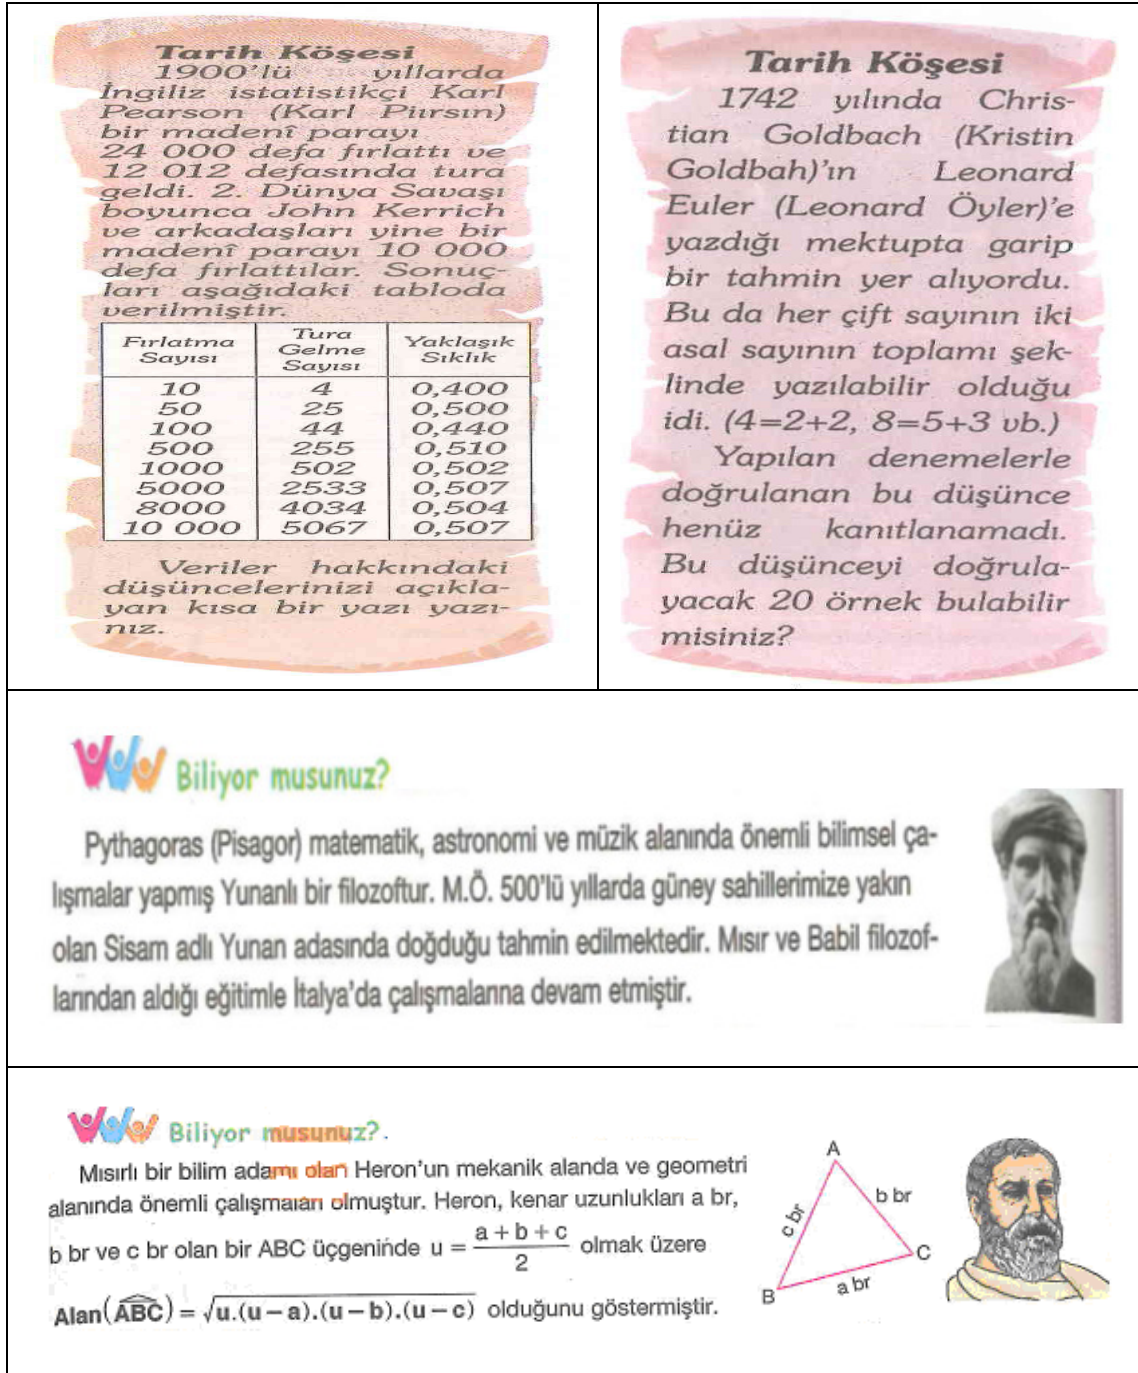 Tarih Köşesi
1900'lü yıllarda
İngiliz istatistikçi Karl
Pearson (Karl Piırsın)
bir madenî parayı
24 000 defa fırlattı ve
12 012 defasında tura
geldi. 2. Dünya Savaşı
boyunca John Kerrich
ve arkadaşları yine bir
madenî parayı 10 000
defa fırlattılar. Sonuç-
ları aşağıdaki tabloda
verilmiştir.
Fırlatma Sayısı Tura Gelme Sayısı Yaklaşık Sıklık
10 4 0,400
50 25 0,500
100 44 0,440
500 255 0,510
1000 502 0,502
5000 2533 0,507
8000 4034 0,504
10 000 5067 0,507
Veriler hakkındaki
düşüncelerinizi açıkla-
yan kısa bir yazı yazı-
nız.
Tarih Köşesi
1742 yılında Chris-
tian Goldbach (Kristin
Goldbah)'ın Leonard
Euler (Leonard Öyler)'e
yazdığı mektupta garip
bir tahmin yer alıyordu.
Bu da her çift sayının iki
asal sayının toplamı şek-
linde yazılabilir olduğu
idi. (4=2+2, 8=5+3 vb.)
Yapılan denemelerle
doğrulanan bu düşünce
henüz kanıtlanamadı.
Bu düşünceyi doğrula-
yacak 20 örnek bulabilir
misiniz?
Biliyor musunuz?
Pythagoras (Pisagor) matematik, astronomi ve müzik alanında önemli bilimsel ça-
lışmalar yapmış Yunanlı bir filozoftur. M.Ö. 500'lü yıllarda güney sahillerimize yakın
olan Sisam adlı Yunan adasında doğduğu tahmin edilmektedir. Mısır ve Babil filozof-
larından aldığı eğitimle İtalya'da çalışmalarına devam etmiştir.
Biliyor musunuz?
Mısırlı bir bilim adamı olan Heron'un mekanik alanda ve geometri
alanında önemli çalışmaları olmuştur. Heron, kenar uzunlukları a br,
b br ve c br olan bir ABC üçgeninde u = a + b + c / 2 olmak üzere
Alan(ABC) = √u.(u – a).(u – b).(u – c) olduğunu göstermiştir.
A
b br
c br
C
a br
B